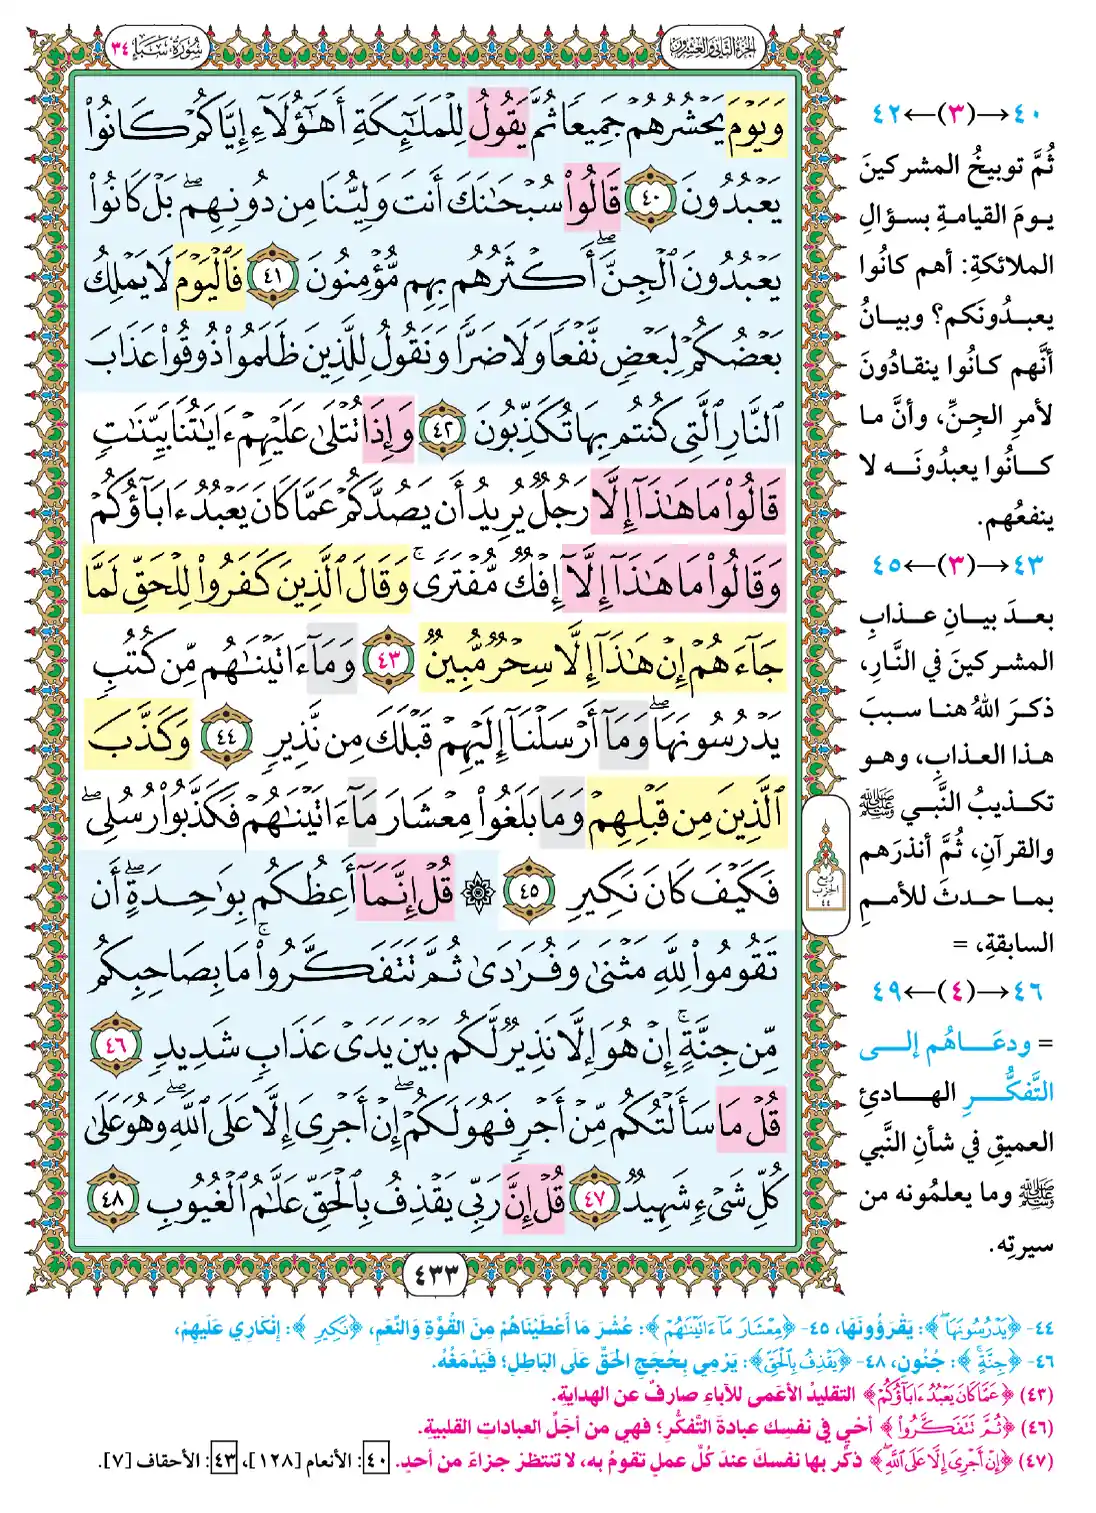 الجزء الثاني والعشرون
سورة سبإ ٣٤
وَيَوْمَ يَحْشُرُهُمْ جَمِيعًا ثُمَّ يَقُولُ لِلْمَلَٰٓئِكَةِ أَهَٰٓؤُلَآءِ إِيَّاكُمْ كَانُوا۟
يَعْبُدُونَ ٤٠ قَالُوا۟ سُبْحَٰنَكَ أَنتَ وَلِيُّنَا مِن دُونِهِم ۖ بَلْ كَانُوا۟
يَعْبُدُونَ ٱلْجِنَّ ۖ أَكْثَرُهُم بِهِم مُّؤْمِنُونَ ٤١ فَٱلْيَوْمَ لَا يَمْلِكُ
بَعْضُكُمْ لِبَعْضٍ نَّفْعًا وَلَا ضَرًّا وَنَقُولُ لِلَّذِينَ ظَلَمُوا۟ ذُوقُوا۟ عَذَابَ
ٱلنَّارِ ٱلَّتِى كُنتُم بِهَا تُكَذِّبُونَ ٤٢ وَإِذَا تُتْلَىٰ عَلَيْهِمْ ءَايَٰتُنَا بَيِّنَٰتٍ
قَالُوا۟ مَا هَٰذَآ إِلَّا رَجُلٌ يُرِيدُ أَن يَصُدَّكُمْ عَمَّا كَانَ يَعْبُدُ ءَابَآؤُكُمْ
وَقَالُوا۟ مَا هَٰذَآ إِلَّآ إِفْكٌ مُّفْتَرًى ۚ وَقَالَ ٱلَّذِينَ كَفَرُوا۟ لِلْحَقِّ لَمَّا
جَآءَهُمْ إِنْ هَٰذَآ إِلَّا سِحْرٌ مُّبِينٌ ٤٣ وَمَآ ءَاتَيْنَٰهُم مِّن كُتُبٍ
يَدْرُسُونَهَا ۖ وَمَآ أَرْسَلْنَآ إِلَيْهِمْ قَبْلَكَ مِن نَّذِيرٍ ٤٤ وَكَذَّبَ
ٱلَّذِينَ مِن قَبْلِهِمْ وَمَا بَلَغُوا۟ مِعْشَارَ مَآ ءَاتَيْنَٰهُمْ فَكَذَّبُوا۟ رُسُلِى ۖ
فَكَيْفَ كَانَ نَكِيرِ ٤٥ ۞ قُلْ إِنَّمَآ أَعِظُكُم بِوَٰحِدَةٍ ۖ أَن
تَقُومُوا۟ لِلَّهِ مَثْنَىٰ وَفُرَٰدَىٰ ثُمَّ تَتَفَكَّرُوا۟ ۚ مَا بِصَاحِبِكُم
مِّن جِنَّةٍ ۚ إِنْ هُوَ إِلَّا نَذِيرٌ لَّكُم بَيْنَ يَدَىْ عَذَابٍ شَدِيدٍ ٤٦
قُلْ مَا سَأَلْتُكُم مِّنْ أَجْرٍ فَهُوَ لَكُمْ ۖ إِنْ أَجْرِىَ إِلَّا عَلَى ٱللَّهِ ۖ وَهُوَ عَلَىٰ
كُلِّ شَىْءٍ شَهِيدٌ ٤٧ قُلْ إِنَّ رَبِّى يَقْذِفُ بِٱلْحَقِّ عَلَّٰمُ ٱلْغُيُوبِ ٤٨
٤٣٣
ربع
الحزب
٤٤
٤٠→(٣)←٤٢
ثُمَّ توبيخُ المشركينَ
يومَ القيامةِ بسؤالِ
الملائكةِ: أهم كانُوا
يعبدُونَكم؟ وبيانُ
أنَّهم كانُوا ينقادُونَ
لأمرِ الجِنِّ، وأنَّ ما
كانُوا يعبدُونَه لا
ينفعُهم.
٤٣→(٣)←٤٥
بعدَ بيانِ عذابِ
المشركينَ في النَّارِ،
ذكرَ اللهُ هنا سببَ
هذا العذابِ، وهو
تكذيبُ النَّبي ﷺ
والقرآنِ، ثُمَّ أنذرَهم
بما حدثَ للأممِ
السابقةِ، =
٤٦→(٤)←٤٩
= ودعَاهُم إلى
التَّفكُّرِ الهادئِ
العميقِ في شأنِ النَّبي
ﷺ وما يعلمُونه من
سيرتِه.
٤٤- ﴿يَدْرُسُونَهَا ۖ﴾: يَقْرَؤُونَهَا، ٤٥- ﴿مِعْشَارَ مَآ ءَاتَيْنَٰهُمْ﴾: عُشْرَ مَا أَعْطَيْنَاهُمْ مِنَ القُوَّةِ وَالنِّعَمِ، ﴿نَكِيرِ﴾: إِنْكَارِي عَلَيْهِمْ،
٤٦- ﴿جِنَّةٍ ۚ﴾: جُنُونٍ، ٤٨- ﴿يَقْذِفُ بِٱلْحَقِّ﴾: يَرْمِي بِحُجَجِ الحَقِّ عَلَى البَاطِلِ؛ فَيَدْمَغُهُ.
(٤٣) ﴿عَمَّا كَانَ يَعْبُدُ ءَابَآؤُكُمْ﴾ التقليدُ الأعْمى للآباءِ صارفٌ عن الهدايةِ.
(٤٦) ﴿ثُمَّ تَتَفَكَّرُوا۟﴾ أحْيِ في نفسِك عبادةَ التَّفكُّرِ؛ فهي من أجَلِّ العباداتِ القلبيةِ.
(٤٧) ﴿إِنْ أَجْرِىَ إِلَّا عَلَى ٱللَّهِ ۖ﴾ ذكِّر بها نفسَكَ عندَ كُلِّ عملٍ تقومُ به، لا تنتظرْ جزاءً من أحدٍ. ٤٠: الأنعام [١٢٨]، ٤٣: الأحقاف [٧].